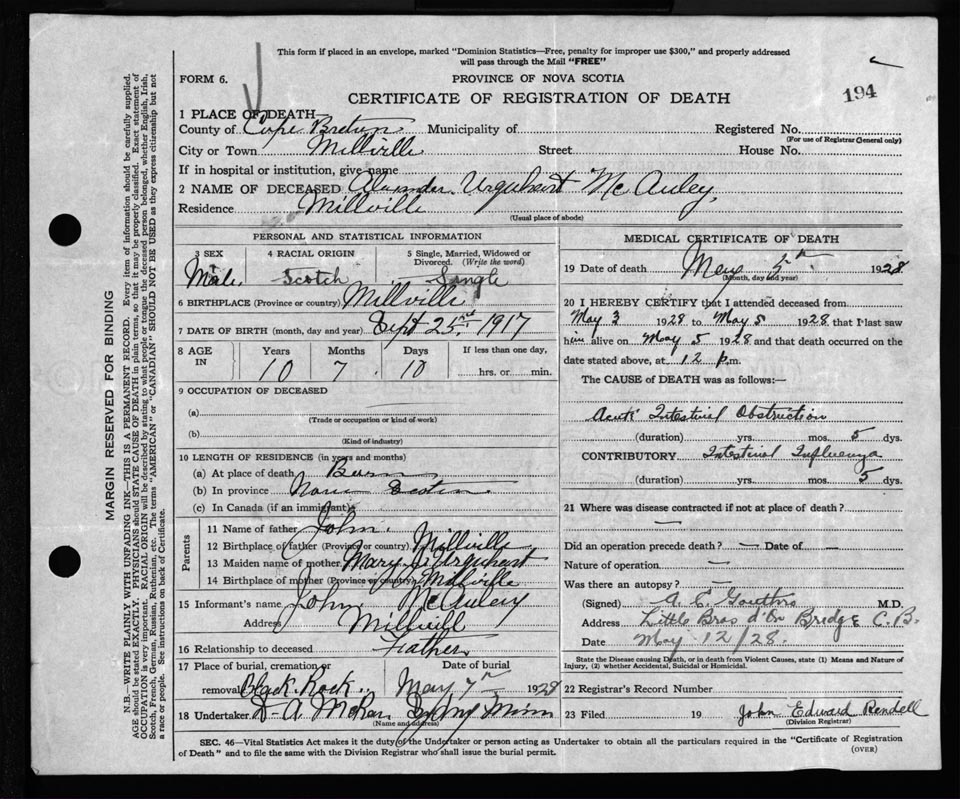 This form if placed in an envelope, marked "Dominion Statistics—Free, penalty for improper use $300," and properly addressed
will pass through the Mail "FREE"
FORM 6.
PROVINCE OF NOVA SCOTIA
CERTIFICATE OF REGISTRATION OF DEATH
194
1 PLACE OF DEATH—
County of Cape Breton Municipality of Registered No.
(For use of Registrar General only)
City or Town Millville Street House No.
If in hospital or institution, give name
2 NAME OF DECEASED Alexander Urquhart McAuley,
Residence Millville
(Usual place of abode)
PERSONAL AND STATISTICAL INFORMATION
3 SEX 4 RACIAL ORIGIN 5 Single, Married, Widowed or Divorced. (Write the word)
Male Scotch Single
6 BIRTHPLACE (Province or country) Millville
7 DATE OF BIRTH (month, day and year) Sept 25 1917
8 AGE IN Years Months Days If less than one day,
10 7 10 hrs. or min.
9 OCCUPATION OF DECEASED
(a)
(Trade or occupation or kind of work)
(b)
(Kind of industry)
10 LENGTH OF RESIDENCE (in years and months)
(a) At place of death Born
(b) In province Nova Scotia
(c) In Canada (if an immigrant)
Parents
11 Name of father John
12 Birthplace of father (Province or country) Millville
13 Maiden name of mother Mary J. Urquhart
14 Birthplace of mother (Province or country) Millville
15 Informant's name John McAuley
Address Millvill
16 Relationship to deceased Father
17 Place of burial, cremation or removal Black Rock Date of burial May 7th 1928
18 Undertaker D. A. McRae Sydney Mines
(Name and address)
MEDICAL CERTIFICATE OF DEATH
19 Date of death May 5th 1928
(Month, day and year)
20 I HEREBY CERTIFY that I attended deceased from
May 3 1928 to May 5 1928 that I last saw
him alive on May 5 1928 and that death occurred on the
date stated above, at 12 p.m.
The CAUSE OF DEATH was as follows:—
Acute Intestinal Obstruction
(duration) yrs. mos. 5 dys.
CONTRIBUTORY Intestinal Influenza
(duration) yrs. mos. 5 dys.
21 Where was disease contracted if not at place of death?
—
Did an operation precede death? — Date of —
Nature of operation —
Was there an autopsy? —
(Signed) M.D.
Address Little Bras d'Or Bridge C.B.
Date May 12/28.
State the Disease causing Death, or in death from Violent Causes, state (1) Means and Nature of
Injury, (2) whether Accidental, Suicidal or Homicidal.
22 Registrar's Record Number
23 Filed 19 John Edward Rendell
(Division Registrar)
SEC. 46—Vital Statistics Act makes it the duty of the Undertaker or person acting as Undertaker to obtain all the particulars required in the "Certificate of Registration
of Death" and to file the same with the Division Registrar who shall issue the burial permit.
(OVER)
MARGIN RESERVED FOR BINDING
N.B.—WRITE PLAINLY WITH UNFADING INK—THIS IS A PERMANENT RECORD. Every item of information should be carefully supplied.
AGE should be stated EXACTLY. PHYSICIANS should STATE CAUSE OF DEATH in plain terms, so that it may be properly classified. Exact statement of
OCCUPATION is very important. RACIAL ORIGIN will be described by stating to what people or tongue the deceased person belonged, whether English, Irish,
Scotch, French, German, Russian, Ruthenian, etc. The terms "AMERICAN" or "CANADIAN" SHOULD NOT BE USED as they express citizenship but not
a race or people. See instructions on back of Certificate.